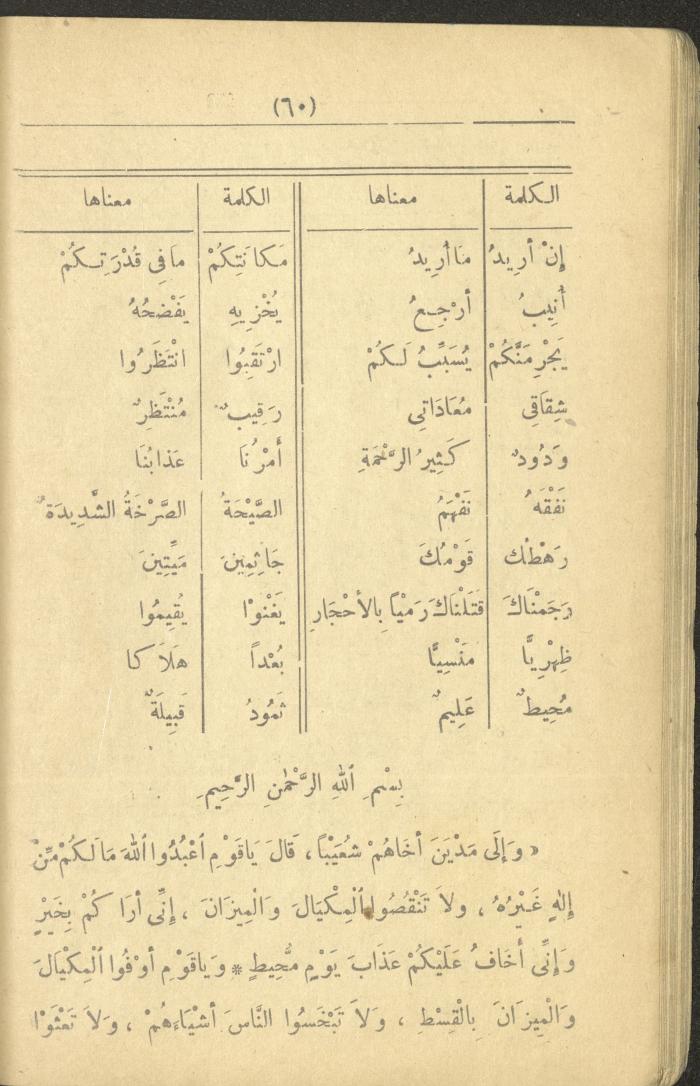 (٦٠)
الكلمة معناها الكلمة معناها
إِنْ أُرِيدُ مَا أُرِيدُ مَكَانَتِكُمْ مَا فِى قُدْرَتِكُمْ
أُنِيبُ أَرْجِعُ يُخْزِيهِ يَفْضَحُهُ
يَجْرِمَنَّكُمْ يُسَبِّبُ لَكُمْ ارْتَقِبُوا انْتَظِرُوا
شِقَاقِى مُعَادَاتِى رَقِيبٌ مُنْتَظِرٌ
وَدُودٌ كَثِيرُ الرَّحْمَةِ أَمْرُنَا عَذَابُنَا
نَفْقَهُ نَفْهَمُ الصَّيْحَةُ الصَّرْخَةُ الشَّدِيدَةُ
رَهْطُكَ قَوْمُكَ جَاثِمِينَ مَيِّتِينَ
رَجَمْنَاكَ قَتَلْنَاكَ رَمْيًا بِالأَحْجَارِ يَغْنَوْا يُقِيمُوا
ظِهْرِيًّا مَنْسِيًّا بُعْداً هَلَاكا
مُحِيطٌ عَلِيمٌ ثَمُودُ قَبِيلَةٌ
بِسْمِ ٱللهِ الرَّحْمٰنِ الرَّحِيمِ
« وَإِلَى مَدْيَنَ أَخَاهُمْ شُعَيْبًا ، قَالَ يَاقَوْمِ ٱعْبُدُوا ٱللهَ مَالَكُمْ مِّنْ
إِلٰهٍ غَيْرُهُ ، وَلاَ تَنْقُصُوا ٱلْمِكْيَالَ وَالْمِيزَانَ ، إِنِّى أَرَا كُمْ بِخَيْرٍ
وَإِنِّى أَخَافُ عَلَيْكُمْ عَذَابَ يَوْمٍ مُّحِيطٍ * وَيَاقَوْمِ أَوْفُوا ٱلْمِكْيَالَ
وَالْمِيزَانَ بِالْقِسْطِ ، وَلاَ تَبْخَسُوا النَّاسَ أَشْيَاءَهُمْ ، وَلاَ تَعْثَوْا